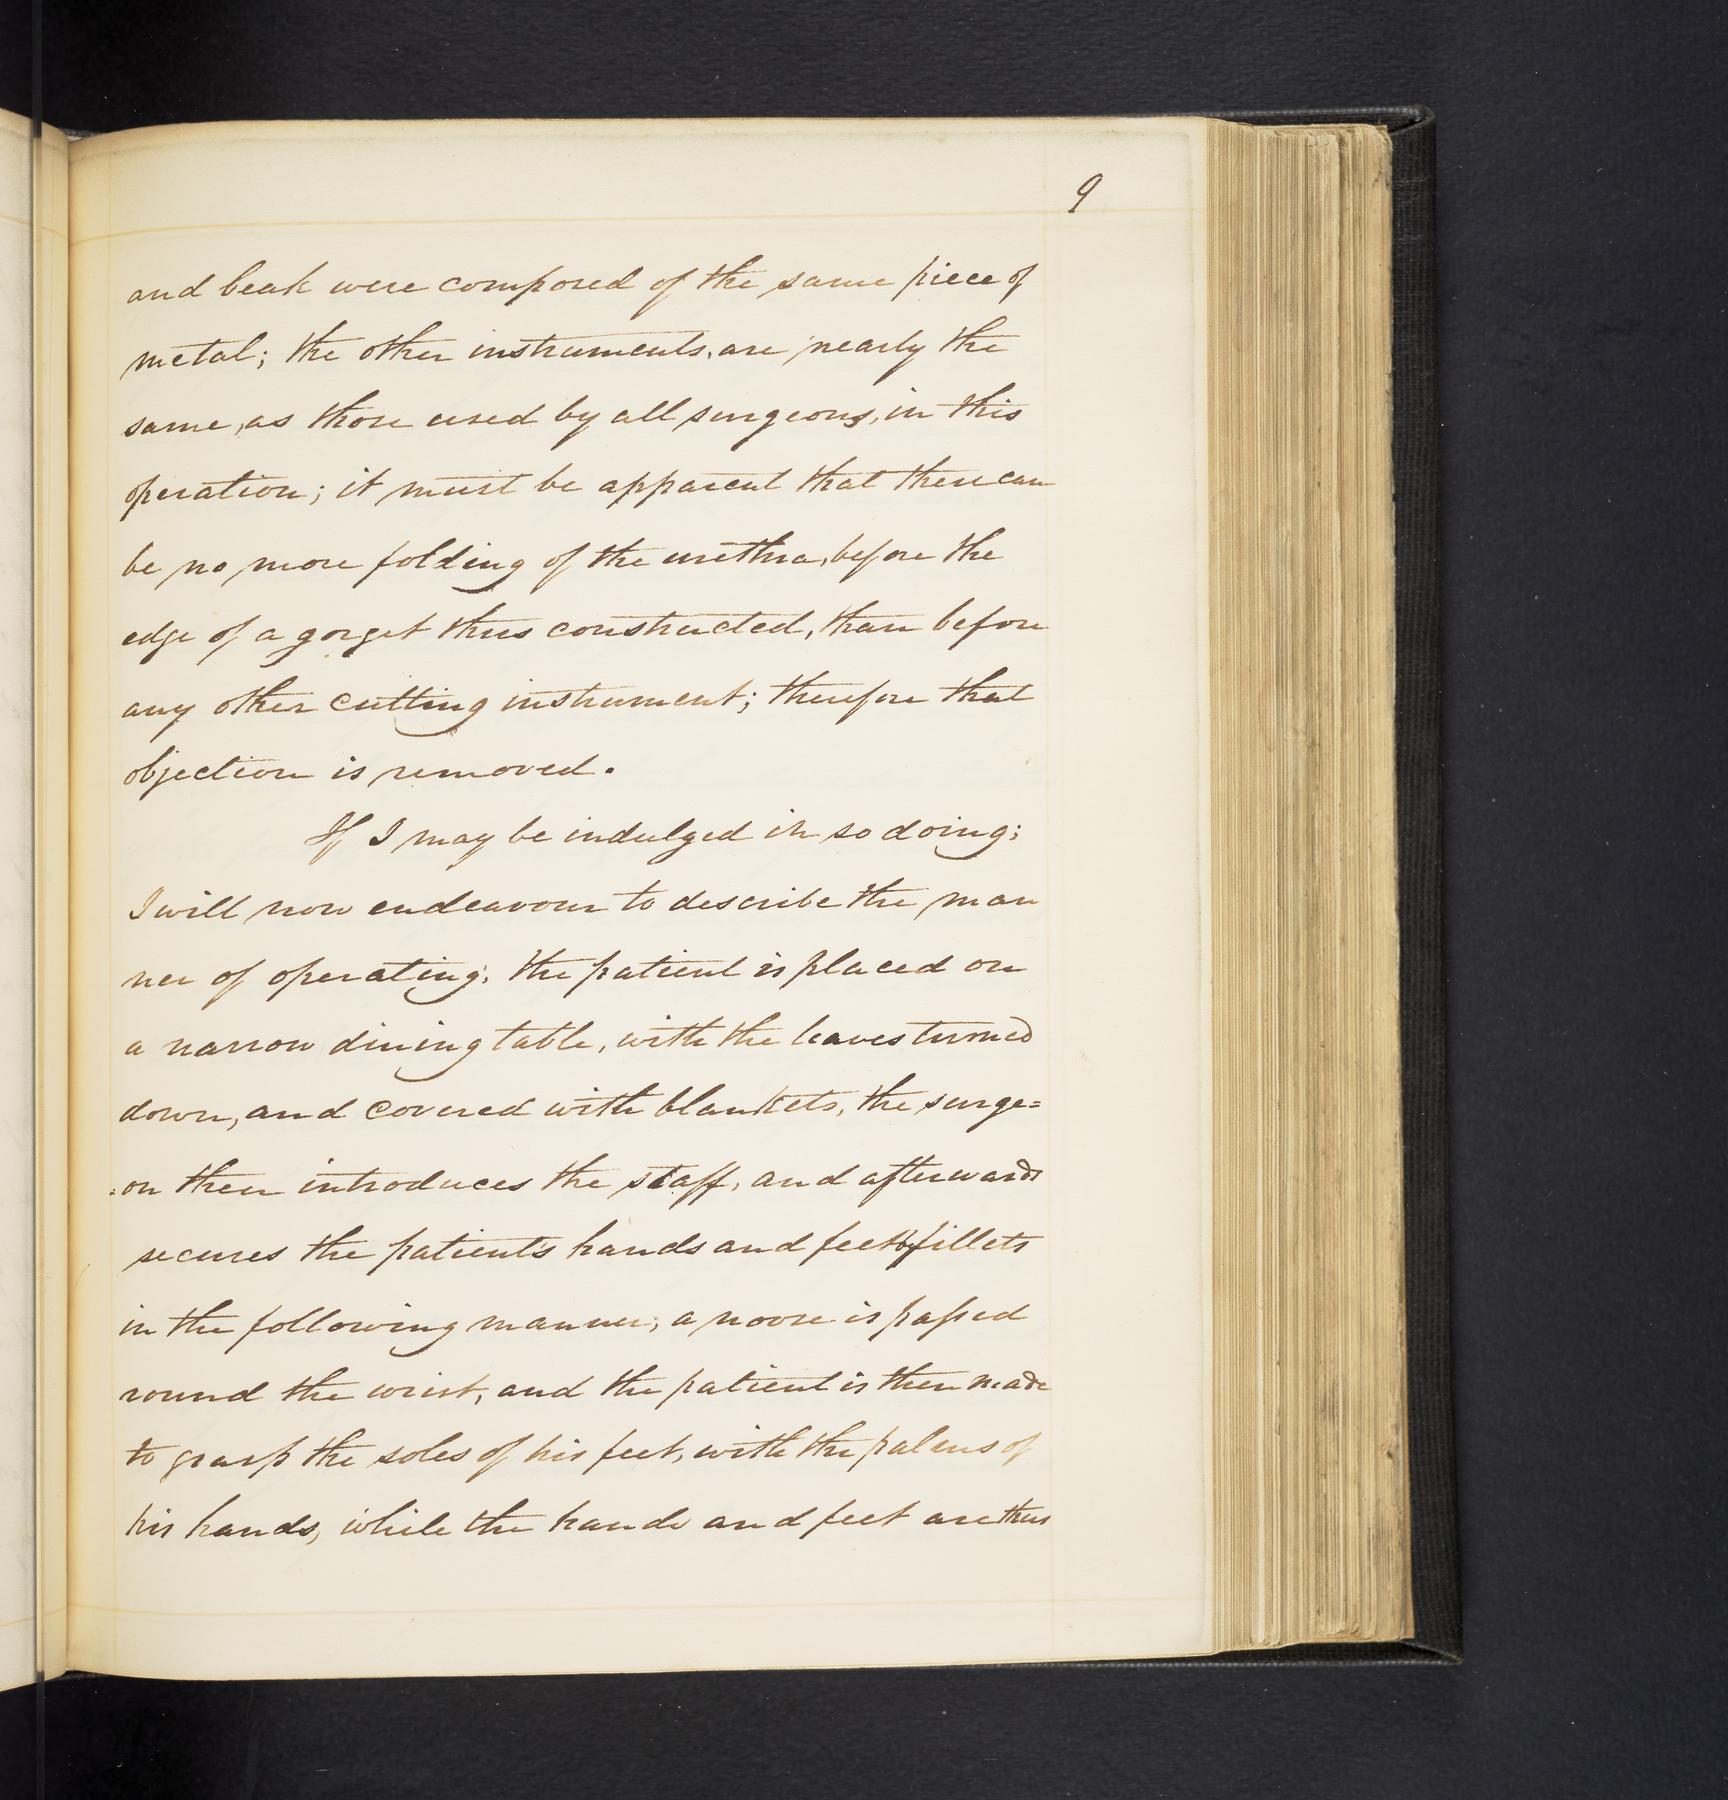 9
and beak were composed of the same piece of
metal; the other instruments, are nearly the
same, as those used by all surgeons, in this
operation; it must be apparent that there can
be no more folding of the urethra, before the
edge of a gorget thus constructed, than before
any other cutting instrument; therefore that
objection is removed.
If I may be indulged in so doing;
I will now endeavour to describe the man
ner of operating; the patient is placed on
a narrow dining table, with the leaves turned
down, and covered with blankets, the surge=
=on then introduces the staff, and afterwards
secures the patient's hands and feet by fillets
in the following manner; a noose is passed
round the wrist, and the patient is then made
to grasp the soles of his feet, with the palms of
his hands, while the hands and feet are thus